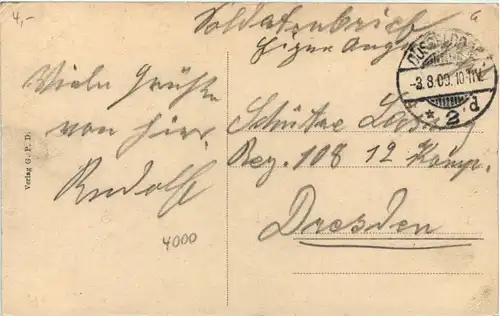 4,-
Soldatenbrief
Eigene Ang
Viele Grüße
von hier.
Rudolf
4000
Verlag G. P. D.
DÜSSELDORF
-3.8.09. 10-11V.
* 2 d
Schütze
Reg. 108 12 Komp.
Dresden